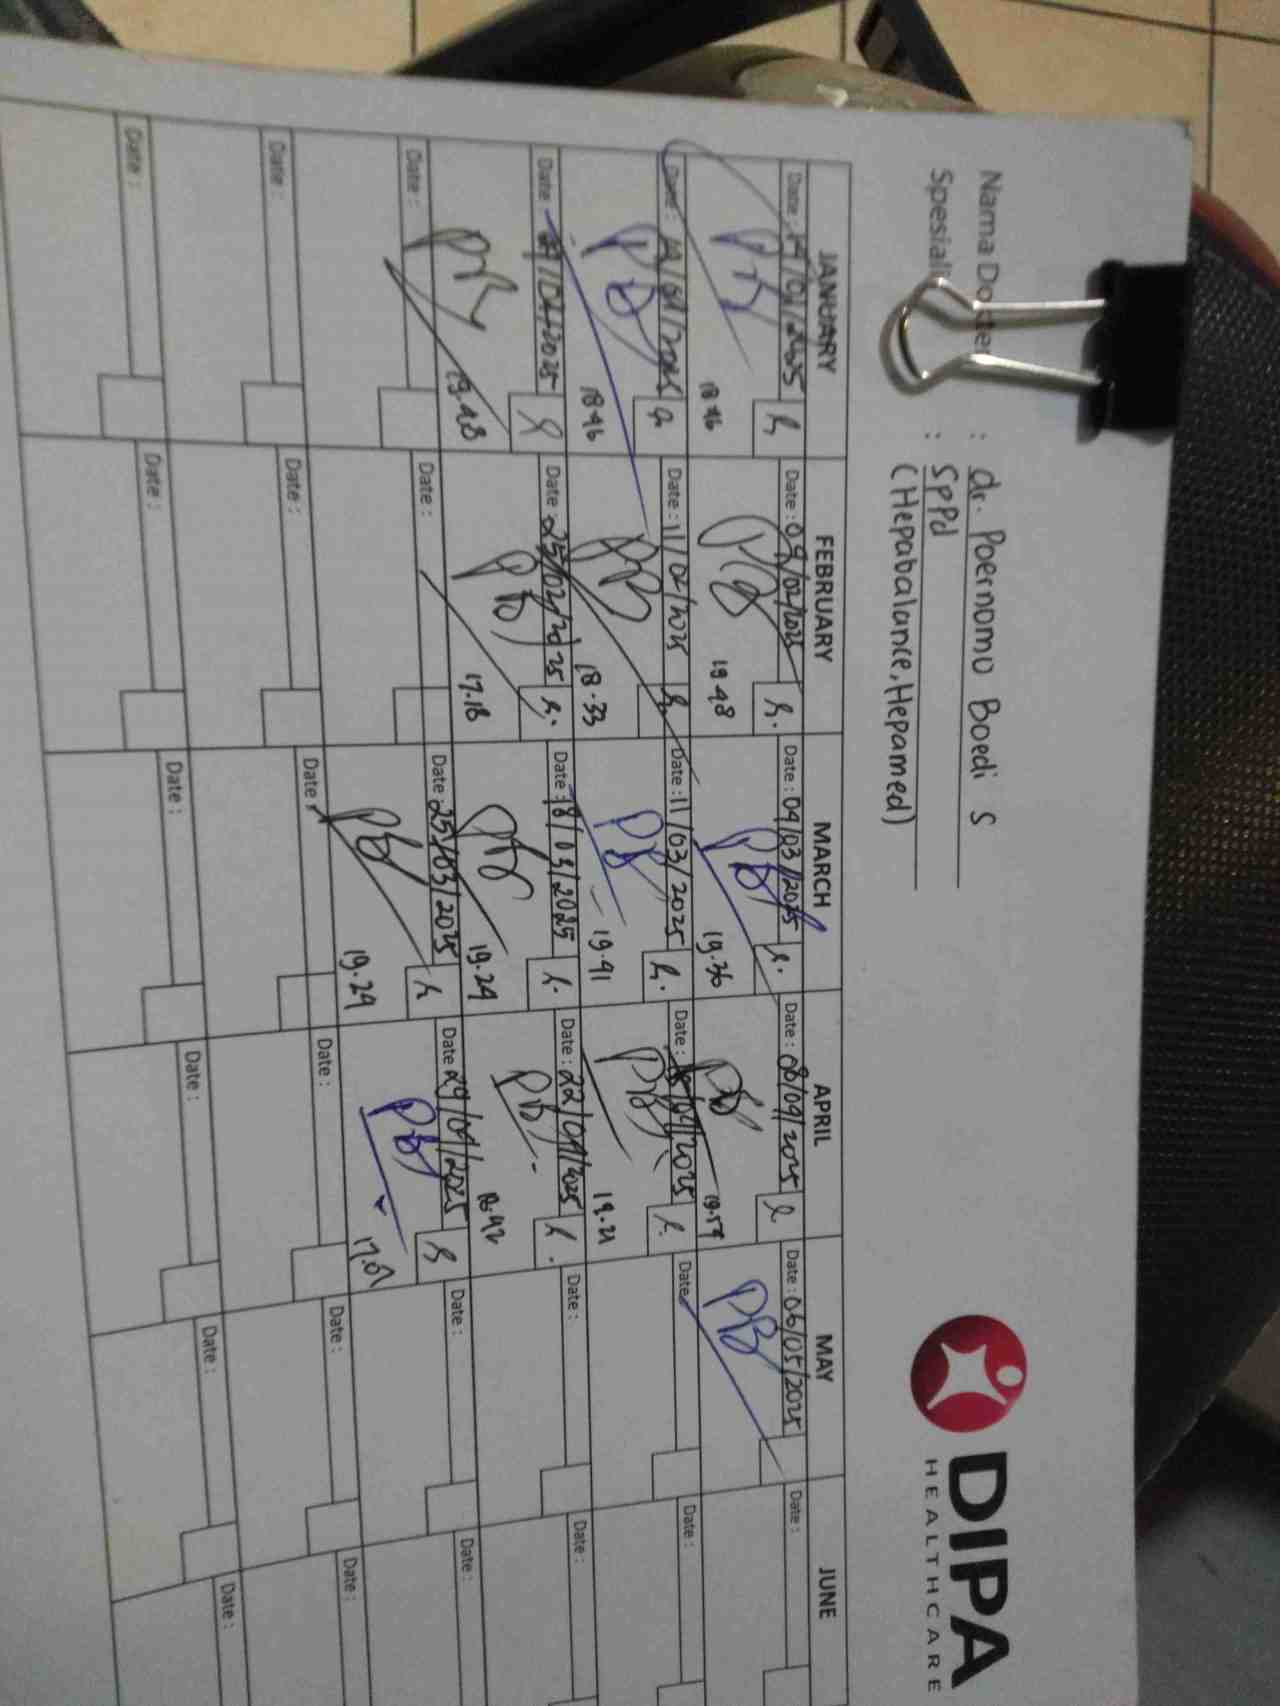 DIPA
HEALTHCARE
Nama Dokter : dr. Poernomo Boedi S
Spesiali : SpPd
(Hepabalance, Hepamed)
JANUARY FEBRUARY MARCH APRIL MAY JUNE
Date: 14/01/2025 Date: 04/02/2025 Date: 04/03/2025 Date: 08/04/2025 Date: 06/05/2025 Date:
PB PB PB PB PB
18.46 19.48 19.36 19.57
Date: Date: 11/02/2025 Date: 11/03/2025 Date: 15/04/2025 Date: Date:
PB PB PB PB
18.46 18.33 19.41 19.21
Date: Date: 25/02/2025 Date: 18/03/2025 Date: 22/04/2025 Date: Date:
PB PB PB PB
19.48 17.18 19.24 18.42
Date: Date: Date: 25/03/2025 Date: 29/04/2025 Date: Date:
PB PB
19.29 17.01
Date: Date: Date: Date: Date: Date:
Date: Date: Date: Date: Date: Date: